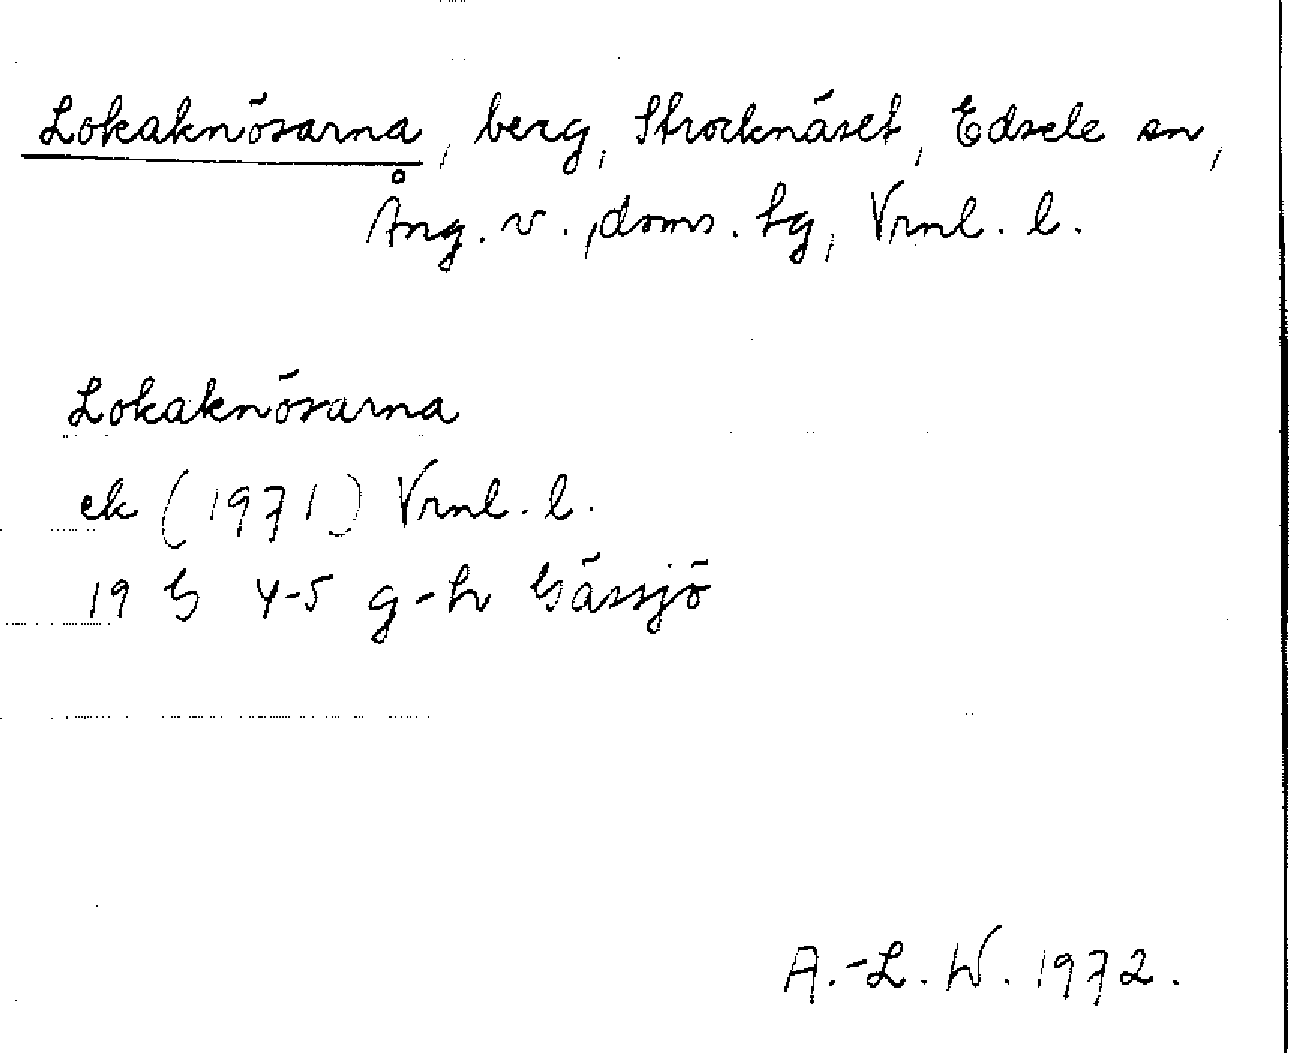 Lokaknösarna, berg, Strocknäset, Edsele sn,
Ång. v., doms. hg, Vrnl. l.
Lokaknösarna
ek (1971) Vrnl. l.
19 G 4-5 g-h Gässjö
A.-L. W. 1972.